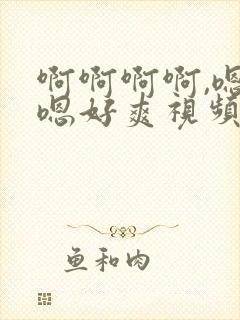 啊啊啊啊,嗯
嗯好爽视频
鱼和肉